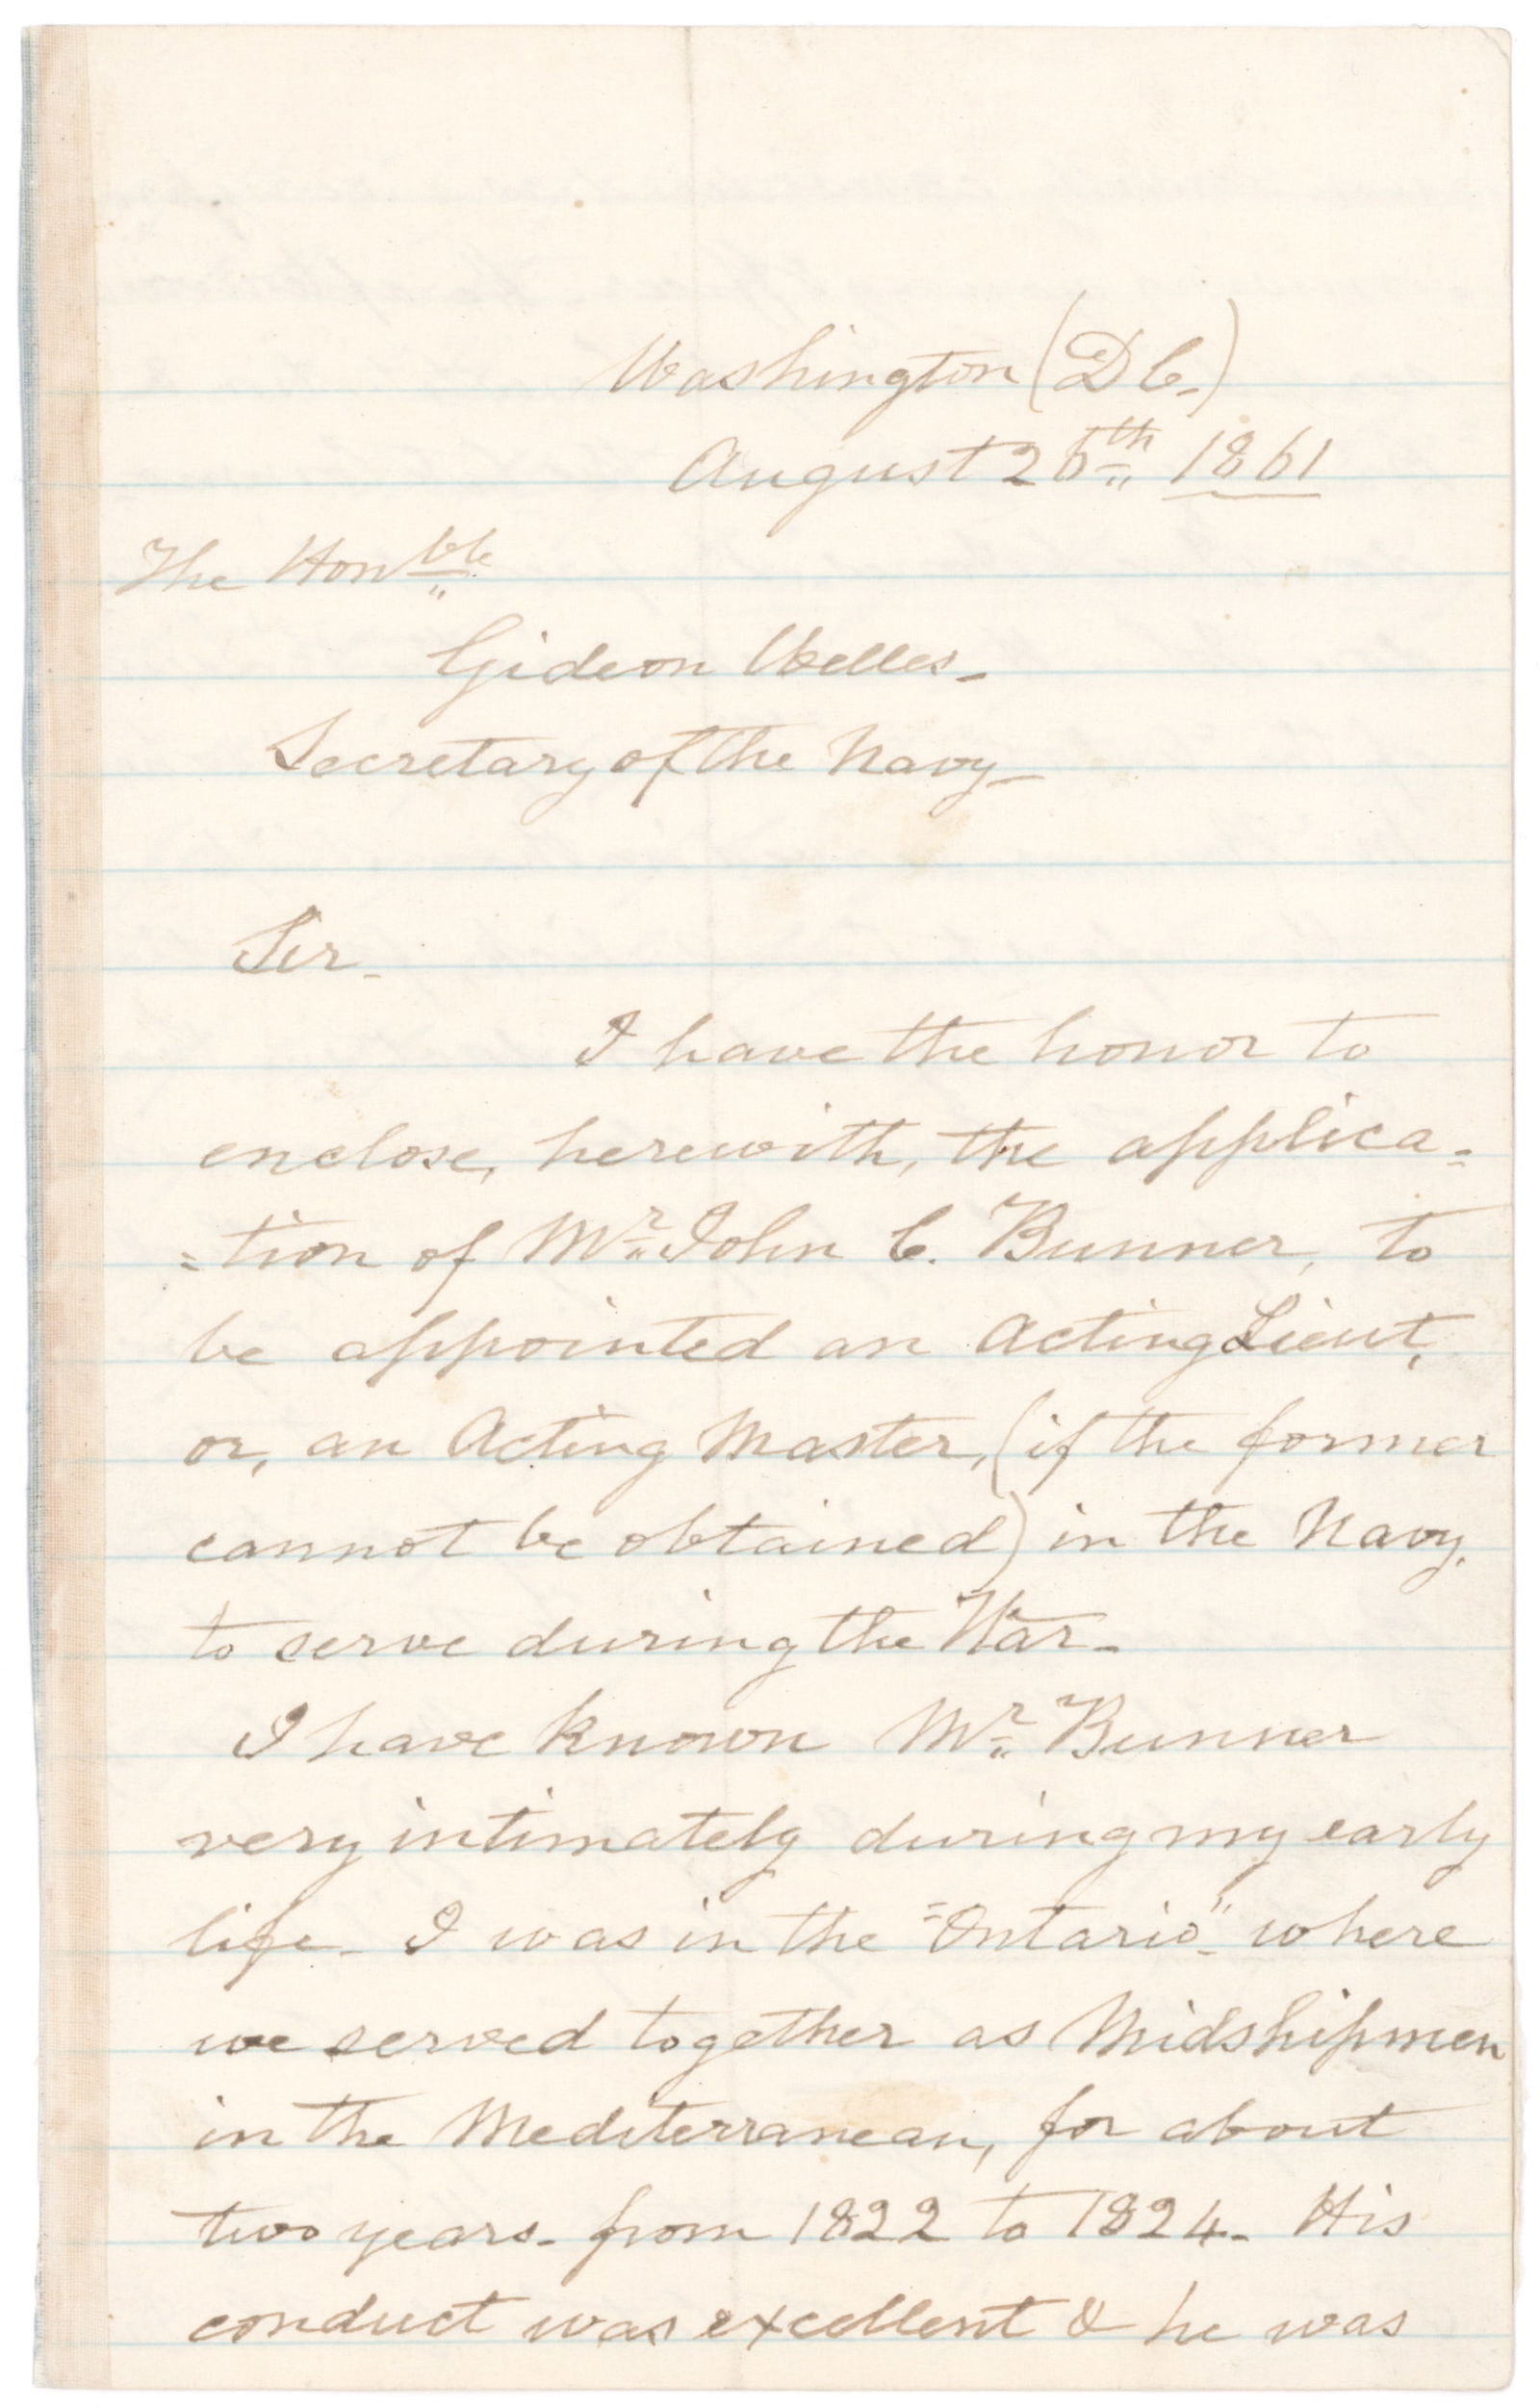 Washington (D C.)
August 26th 1861
The Honble
Gideon Welles -
Secretary of the Navy -
Sir -
I have the honor to
enclose, herewith, the applica=
=tion of Mr. John C. Bunner, to
be appointed an Acting Lieut,
or, an Acting Master, (if the former
cannot be obtained) in the Navy,
to serve during the War -
I have known Mr. Bunner
very intimately during my early
life - I was in the "Ontario" where
we served together as Midshipmen
in the Mediterranean, for about
two years - from 1822 to 1824 - His
conduct was excellent & he was